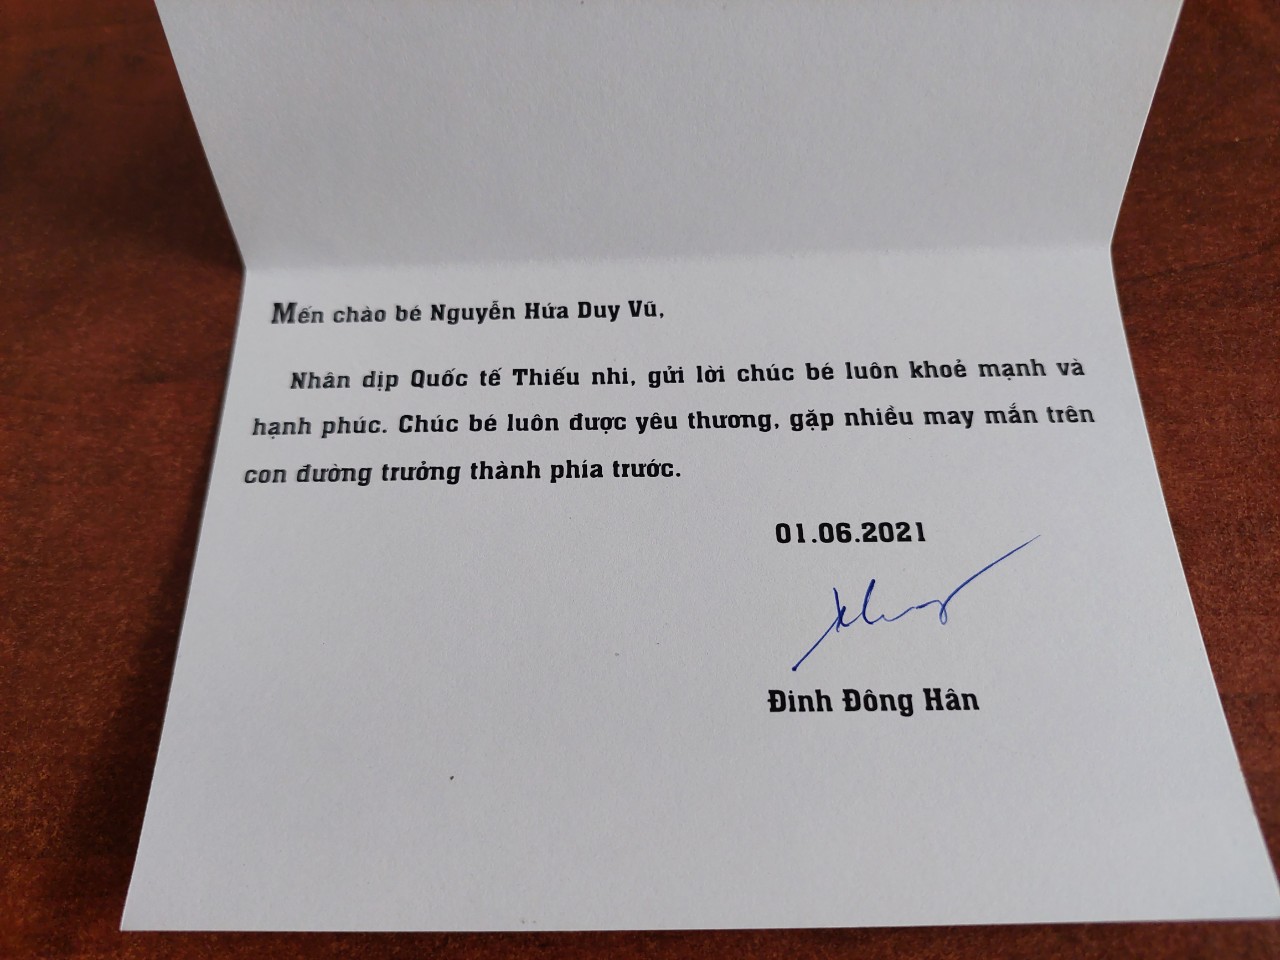 Mến chào bé Nguyễn Hứa Duy Vũ,
Nhân dịp Quốc tế Thiếu nhi, gửi lời chúc bé luôn khoẻ mạnh và
hạnh phúc. Chúc bé luôn được yêu thương, gặp nhiều may mắn trên
con đường trưởng thành phía trước.
01.06.2021
Đinh Đông Hân